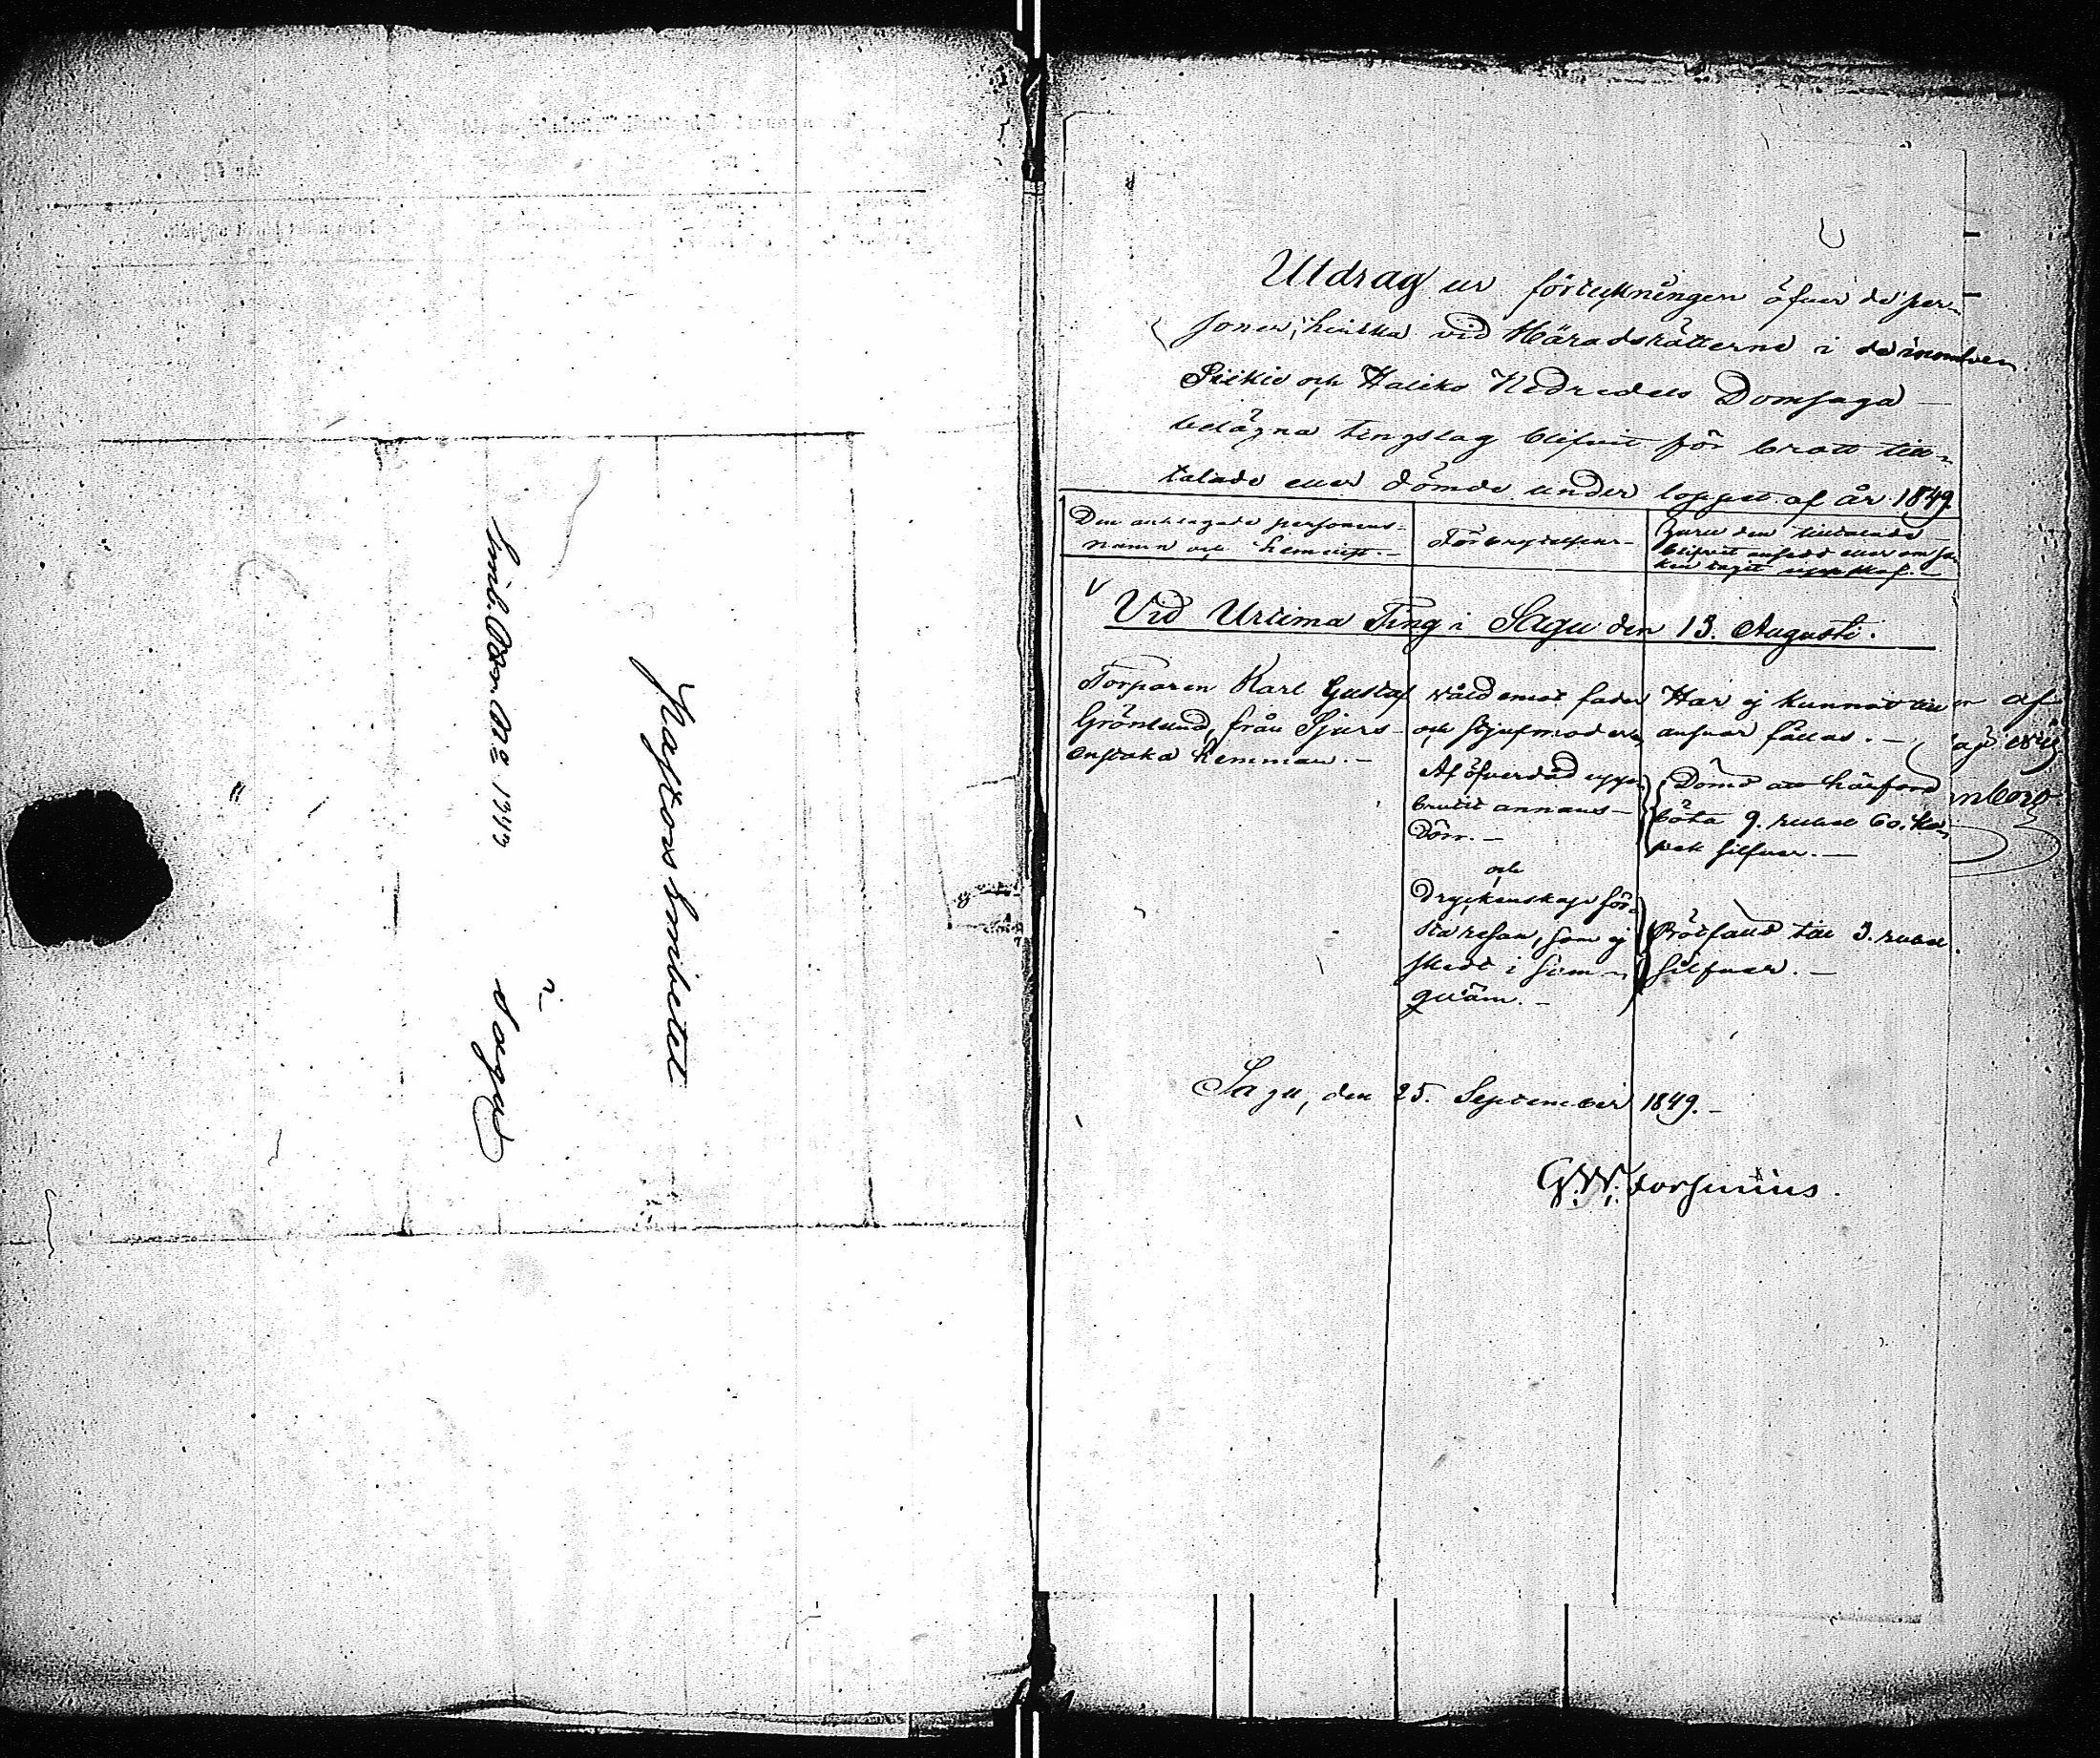 Pastors Embetet
i
Sagu
Utdrag ur förtekningen öfver de per-
soner, hvilka vid Häradsrätterne i de inom
Piikie och Haliko Nedredels Domsaga
belägna tingslag blifvit för brott till-
talade eller dömde under loppet af år 1849.
Den anklagade personens
namn och hemvist.
Förbrytelsen
Huru den tilltalade
blifvit ansedd eller om sa-
ken tagit uppskof.
Vid Urtima Ting i Sagu den 13. Augusti.
Torparen Karl Gustaf
Grönlund, från Sjurs
enstaka hemman.
våld emot fader
och styfmoder
Har ej kunnat till
ansvar fällas.
Af öfverdåd upp-
brutit annans
dörr.
Dömd att härför
böta 9. rubel 60. ko-
pek silfver.
och
Dryckenskap för-
sta resan, som ej
skedt i sam-
qväm.
Bötfälld till 3. rubel
silfver.
af
1849
Sagu, den 25. September 1849.
G. W. Forsenius.